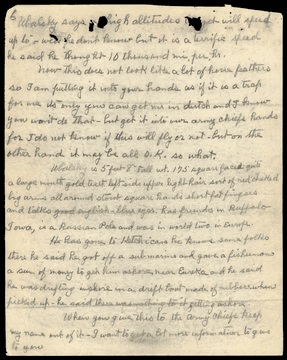 6
Ubalsky says in high altitudes the jet will speed
up to - well he dont know but it is a terrific speed
he said he thought 10 thousand mi. per. hr.
Now this does not look like a lot of horse feathers
so I am putting it into your hands as if it is a trap
for me its only you can get me in dutch and I know
you wont do that - but get it into our army chiefs hands
for I do not know if this will fly or not - but on the
other hand it may be all O.K. so what.
Ubalsky is 5 feet 8" tall wt. 175 square faced quite
a large mouth gold teeth left side upper high hair sort of
big arms all around stout square hands short fat fingers
and talks good english - blue eyes. has friends in Buffalo
Iowa, is a Russian Pole and was in world two in Europe
He has gone to Hutchison Ks. knows some folks
there he said he got off a submarine and gave a fisherman
a sum of money to get him ashore near Eureka and he said
he was drifting inshore in a draft boat made of rubber when
picked up - he said there was nothing to it getting ashore
When you give this to the Army Chiefs keep
my name out of it - I want to get a lot more information to give
to you